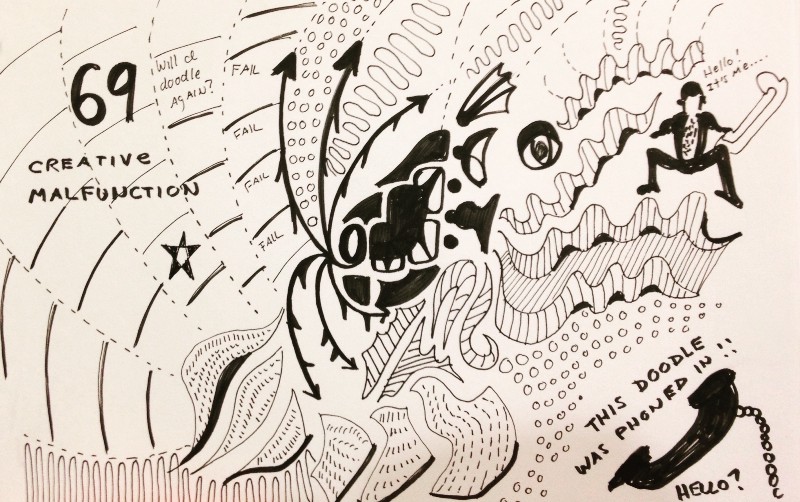 69
CREATIVE
MALFUNCTION
Will I
doodle
AGAIN?
FAIL
FAIL
FAIL
FAIL
Hello!
It's me....
THIS DOODLE
WAS PHONED IN !!
HELLO?